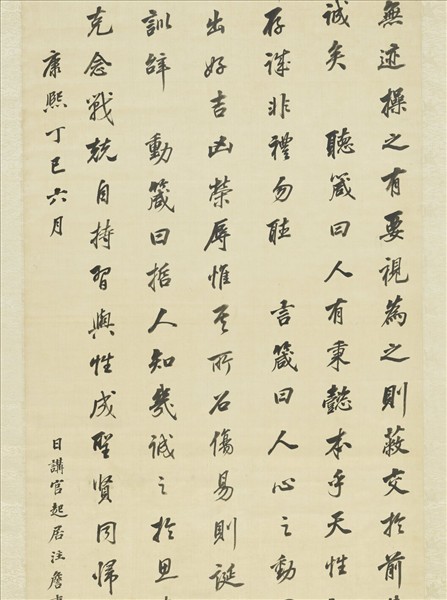 無迹操之有要視為之則蔽交於前
誠矣　聽箴曰人有秉懿本乎天性
存誠非禮勿聽　言箴曰人心之動
出好吉凶榮辱惟其所召傷易則誕
訓辭　動箴曰哲人知幾誠之於思
克念戰兢自持習與性成聖賢同歸
康熙丁巳六月
日講官起居注詹